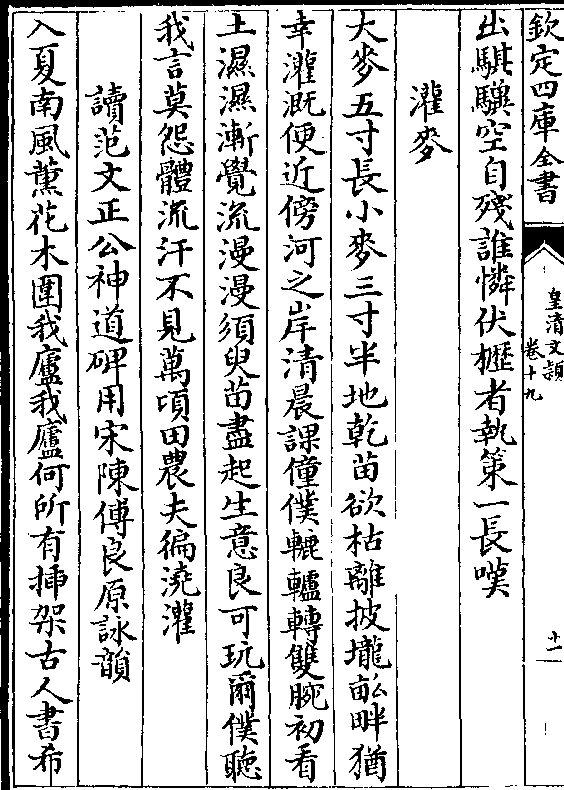 欽定四庫全書
皇清文類
卷十九
十一
出騏驥空自殘誰憐伏櫪者執策一長嘆
灌麥
大麥五寸長小麥三寸半地乾苗欲枯離披壠畝畔猶
幸灌溉便近傍河之岸清晨課僮僕轆轤轉雙腕初看
土濕濕漸覺流漫漫須臾苗盡起生意良可玩爾僕聽
我言莫怨體流汗不見萬頃田農夫徧澆灌
讀范文正公神道碑用宋陳傅良原詠韻
入夏南風薰花木圍我廬我廬何所有揷架古人書希